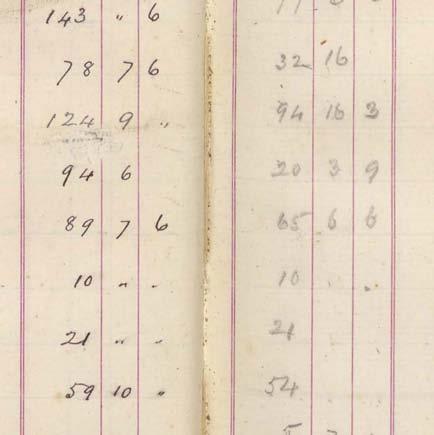 143 〃 6
78 7 6 32 16
124 9 〃 94 16 3
94 6 20 3 9
89 7 6 65 6 6
10 〃 〃 10 . .
21 〃 〃 21
59 10 〃 54